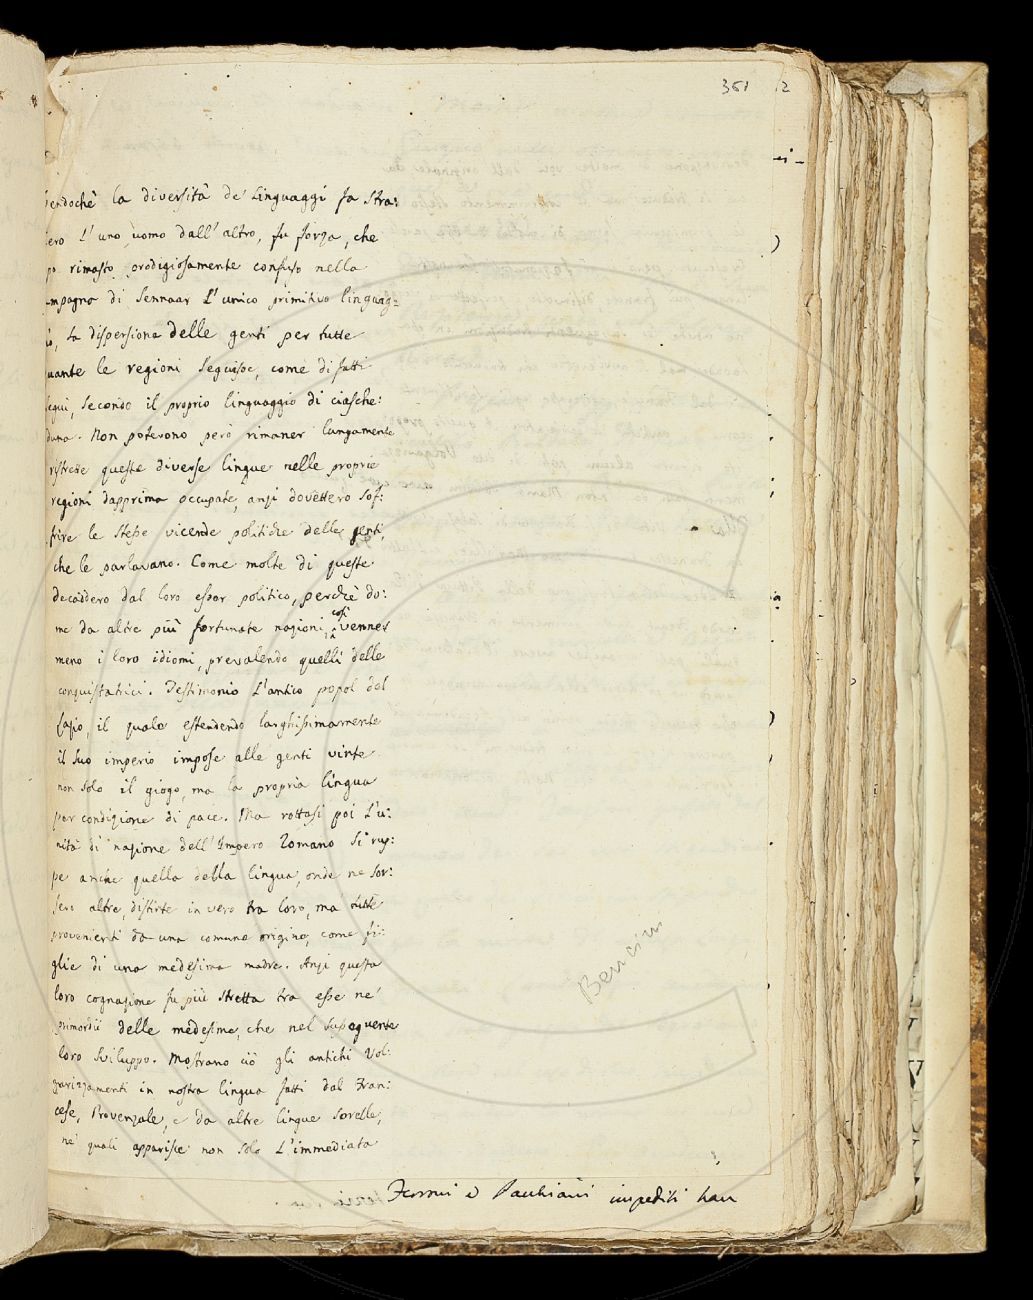 361 2
endochè la diversità de' Linguaggi fa stra:
iero l'uno uomo dall'altro, fu forza, che
po rimasto prodigiosamente confuso nella
mpagna di Sennaar l'unico primitivo linguag=
io, la dispersione delle genti per tutte
uante le regioni seguisse, come di fatti
seguì, secondo il proprio linguaggio di ciasche:
duna. Non potevono però rimaner lungamente
ristrette queste diverse lingue nelle proprie
regioni dapprima occupate, anzi dovettero sof:
frire le stesse vicende politiche delle genti,
che le parlavano. Come molte di queste
decaddero dal loro esser politico, perchè do:
me da altre più fortunate nazioni, così venner
meno i loro idiomi, prevalendo quelli delle
conquistatrici. Testimonio l'antico popol del
Lazio, il quale estendendo larghissimamente
il suo imperio impose alle genti vinte
non solo il giogo, ma la propria lingua
per condizione di pace. Ma rottasi poi l'u:
nità di nazione dell'Impero Romano si rup:
pe anche quella della lingua, onde ne sor:
sero altre, distinte in vero tra loro, ma tutte
provenienti da una comune origine, come fi:
glie di una medesima madre. Anzi questa
loro cognazione fu più stretta tra esse ne'
primordii delle medesime, che nel susseguente
loro sviluppo. Mostrano ciò gli antichi vol:
garizzamenti in nostra lingua fatti dal Fran:
cese, Provenzale, e da altre lingue sorelle,
ne' quali apparisce non solo l'immediata
Bencini
impediti han